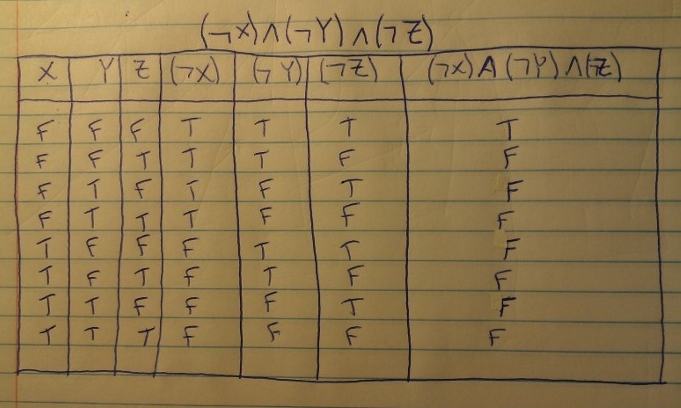 (¬X)∧(¬Y)∧(¬Z)
X Y Z (¬X) (¬Y) (¬Z) (¬X)∧(¬Y)∧(¬Z)
F F F T T T T
F F T T T F F
F T F T F T F
F T T T F F F
T F F F T T F
T F T F T F F
T T F F F T F
T T T F F F F